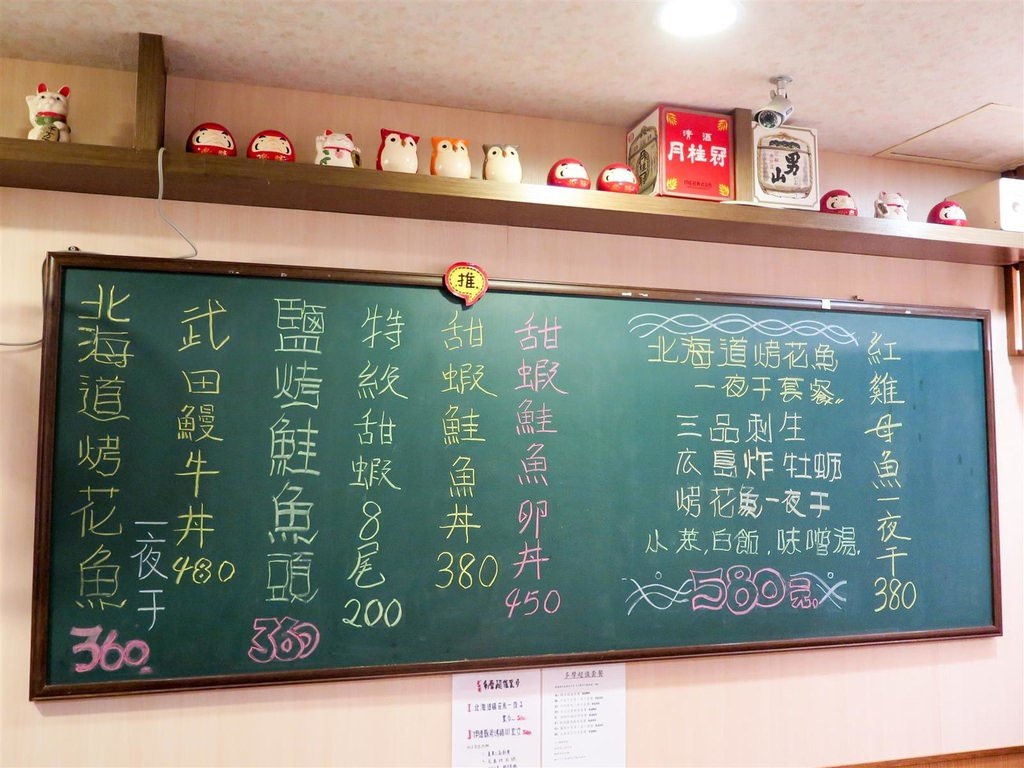 清酒
月桂冠
男山
推
北海道烤花魚
一夜干
360
武田鰻牛丼
480
鹽烤鮭魚頭
360
特級甜蝦8尾
200
甜蝦鮭魚丼
380
甜蝦鮭魚卵丼
450
北海道烤花魚
一夜干套餐
三品刺生
広島炸牡蛎
烤花魚一夜干
小菜,白飯,味噌湯.
580元
紅雞母魚一夜干
380